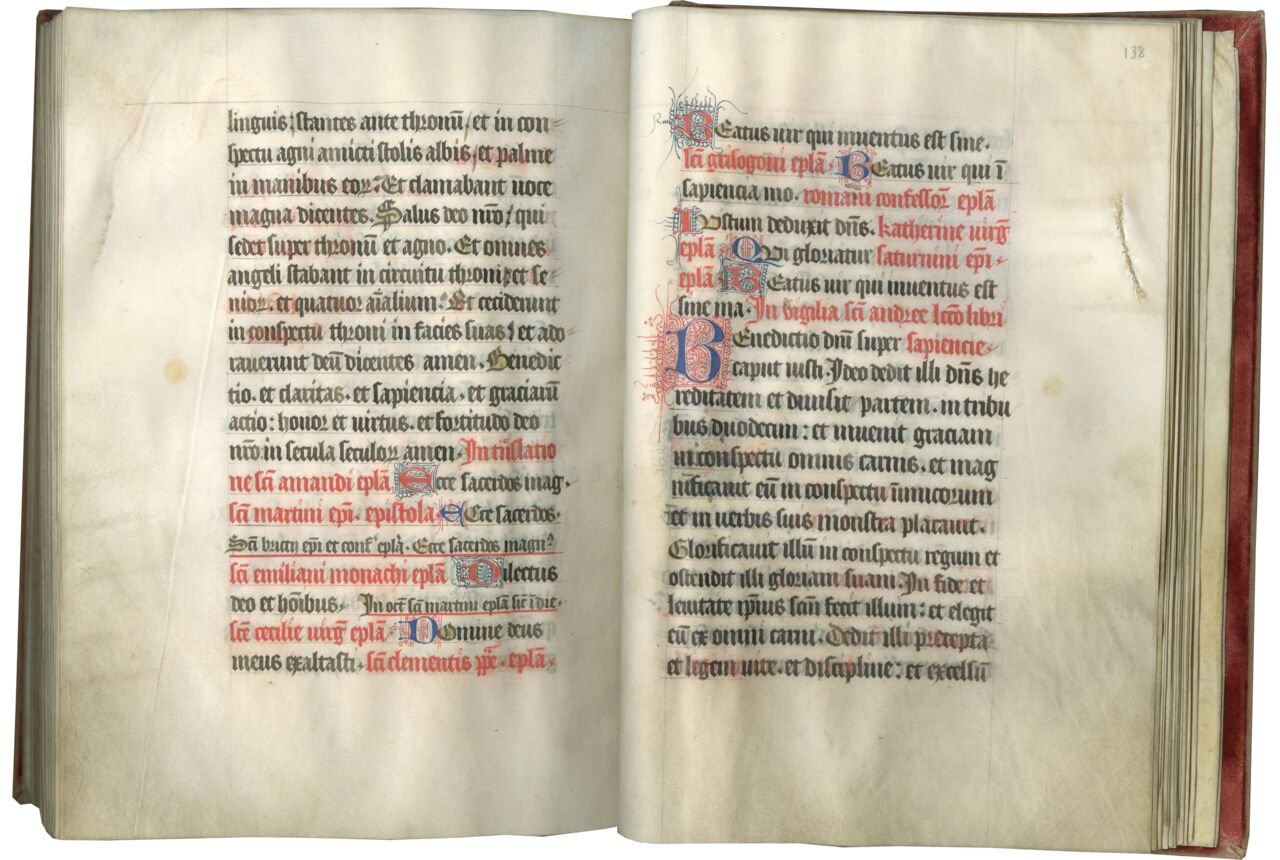 linguis: stantes ante thronū / et in con
spectu agni amicti stolis albis / et palme
in manibus eoꝝ. Et clamabant uoce
magna dicentes. Salus deo nr̄o / qui
sedet super thronū et agno. Et omnes
angeli stabant in circuitu throni: et se
nioꝝ. et quatuor aīalium. Et ceciderunt
in conspectu throni in facies suas: et ado
rauerunt deū dicentes amen. Benedic
tio. et claritas. et sapiencia. et graciarū
actio: honor et uirtus. et fortitudo deo
nr̄o in secula seculoꝝ amen. In trāslatio
ne sc̄i amandi epl̄a Ecce sacerdos mag.
sc̄i martini epī. epistola. Ecce sacerdos.
Sc̄i bricij epī et conf. epl̄a. Ecce sacerdos magn9
sc̄i emiliani monachi epl̄a Dilectus
deo et hoībus. In oct̄ sc̄i martini epl̄a sic ī die.
sc̄e cecilie uirḡ epl̄a. Domine deus
meus exaltasti. sc̄i clementis pp̄e. epl̄a.
138
Beatus uir qui inuentus est sine.
sc̄i grisogoni epl̄a. Beatus uir qui ī
sapiencia mo. romani confessoꝝ epl̄a
Iustum deduxit dn̄s. katherine uirḡ
epl̄a Qui gloriatur saturnini epī.
epl̄a Beatus uir qui inuentus est
sine ma. In vigilia sc̄i andree lc̄o libri
Benedictio dn̄i super sapiencie.
caput iusti. Ideo dedit illi dn̄s he
reditatem et diuisit partem. in tribu
bus duodecim: et inuenit graciam
in conspectu omnis carnis. et mag
nificauit eū in conspectu inimicorum
et in uerbis suis monstra placauit.
Glorificauit illū in conspectu regum et
ostendit illi gloriam suam. In fide et
lenitate ip̄ius sc̄m fecit illum: et elegit
eū ex omni carni. Dedit illi precepta
et legem uite. et discipline: et excelsū